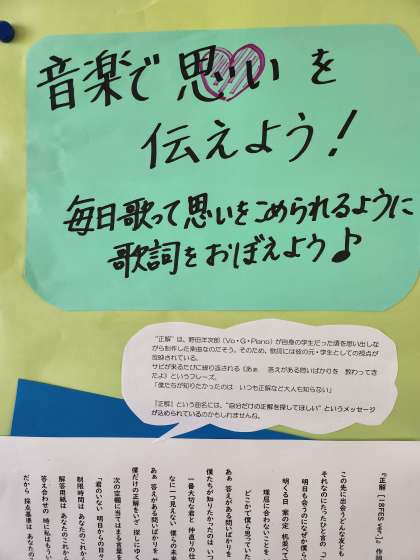 音楽で思いを
伝えよう!
毎日歌って思いをこめられるように
歌詞をおぼえよう♪
"正解"は、野田洋次郎(Vo・G・Piano)が自身の学生だった頃を思い出しな
がら制作した楽曲なのだそう。そのため、歌詞には彼の元・学生としての視点が
反映されている。
サビが来るたびに繰り返される「あぁ 答えがある問いばかりを 教わってき
たよ」というフレーズ。
「僕たちが知りたかったのは いつも正解など大人も知らない」
『正解』という曲名には、"自分だけの正解を探してほしい"というメッセージ
が込められているのかもしれませんね。
『正解 (18FES ver.)』 作詞
この先に出会うどんな友と
それなのにたったひと言の「
明日も会うのになぜか僕ら
明くる日 案の定 机並べて
理屈に合わないことを
どこかで僕ら思っていた
あぁ 答えがある問いばかり
僕たちが知りたかったのは いつ
一番大切な君と 仲直りの仕
なに一つ見えない 僕らの未来
あぁ 答えがある問いばかりを
僕だけの正解をいざ 探しにゆく
次の空欄に当てはまる言葉を
「君のいない 明日からの日々
制限時間は あなたのこれか
解答用紙は あなたのこれか
答え合わせの 時に私はもうい
だから 採点基準は あなたの